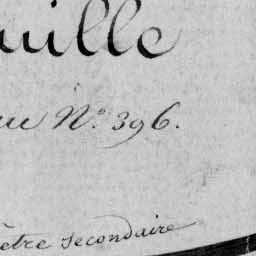 uille
ue N.º 396.
être secondaire